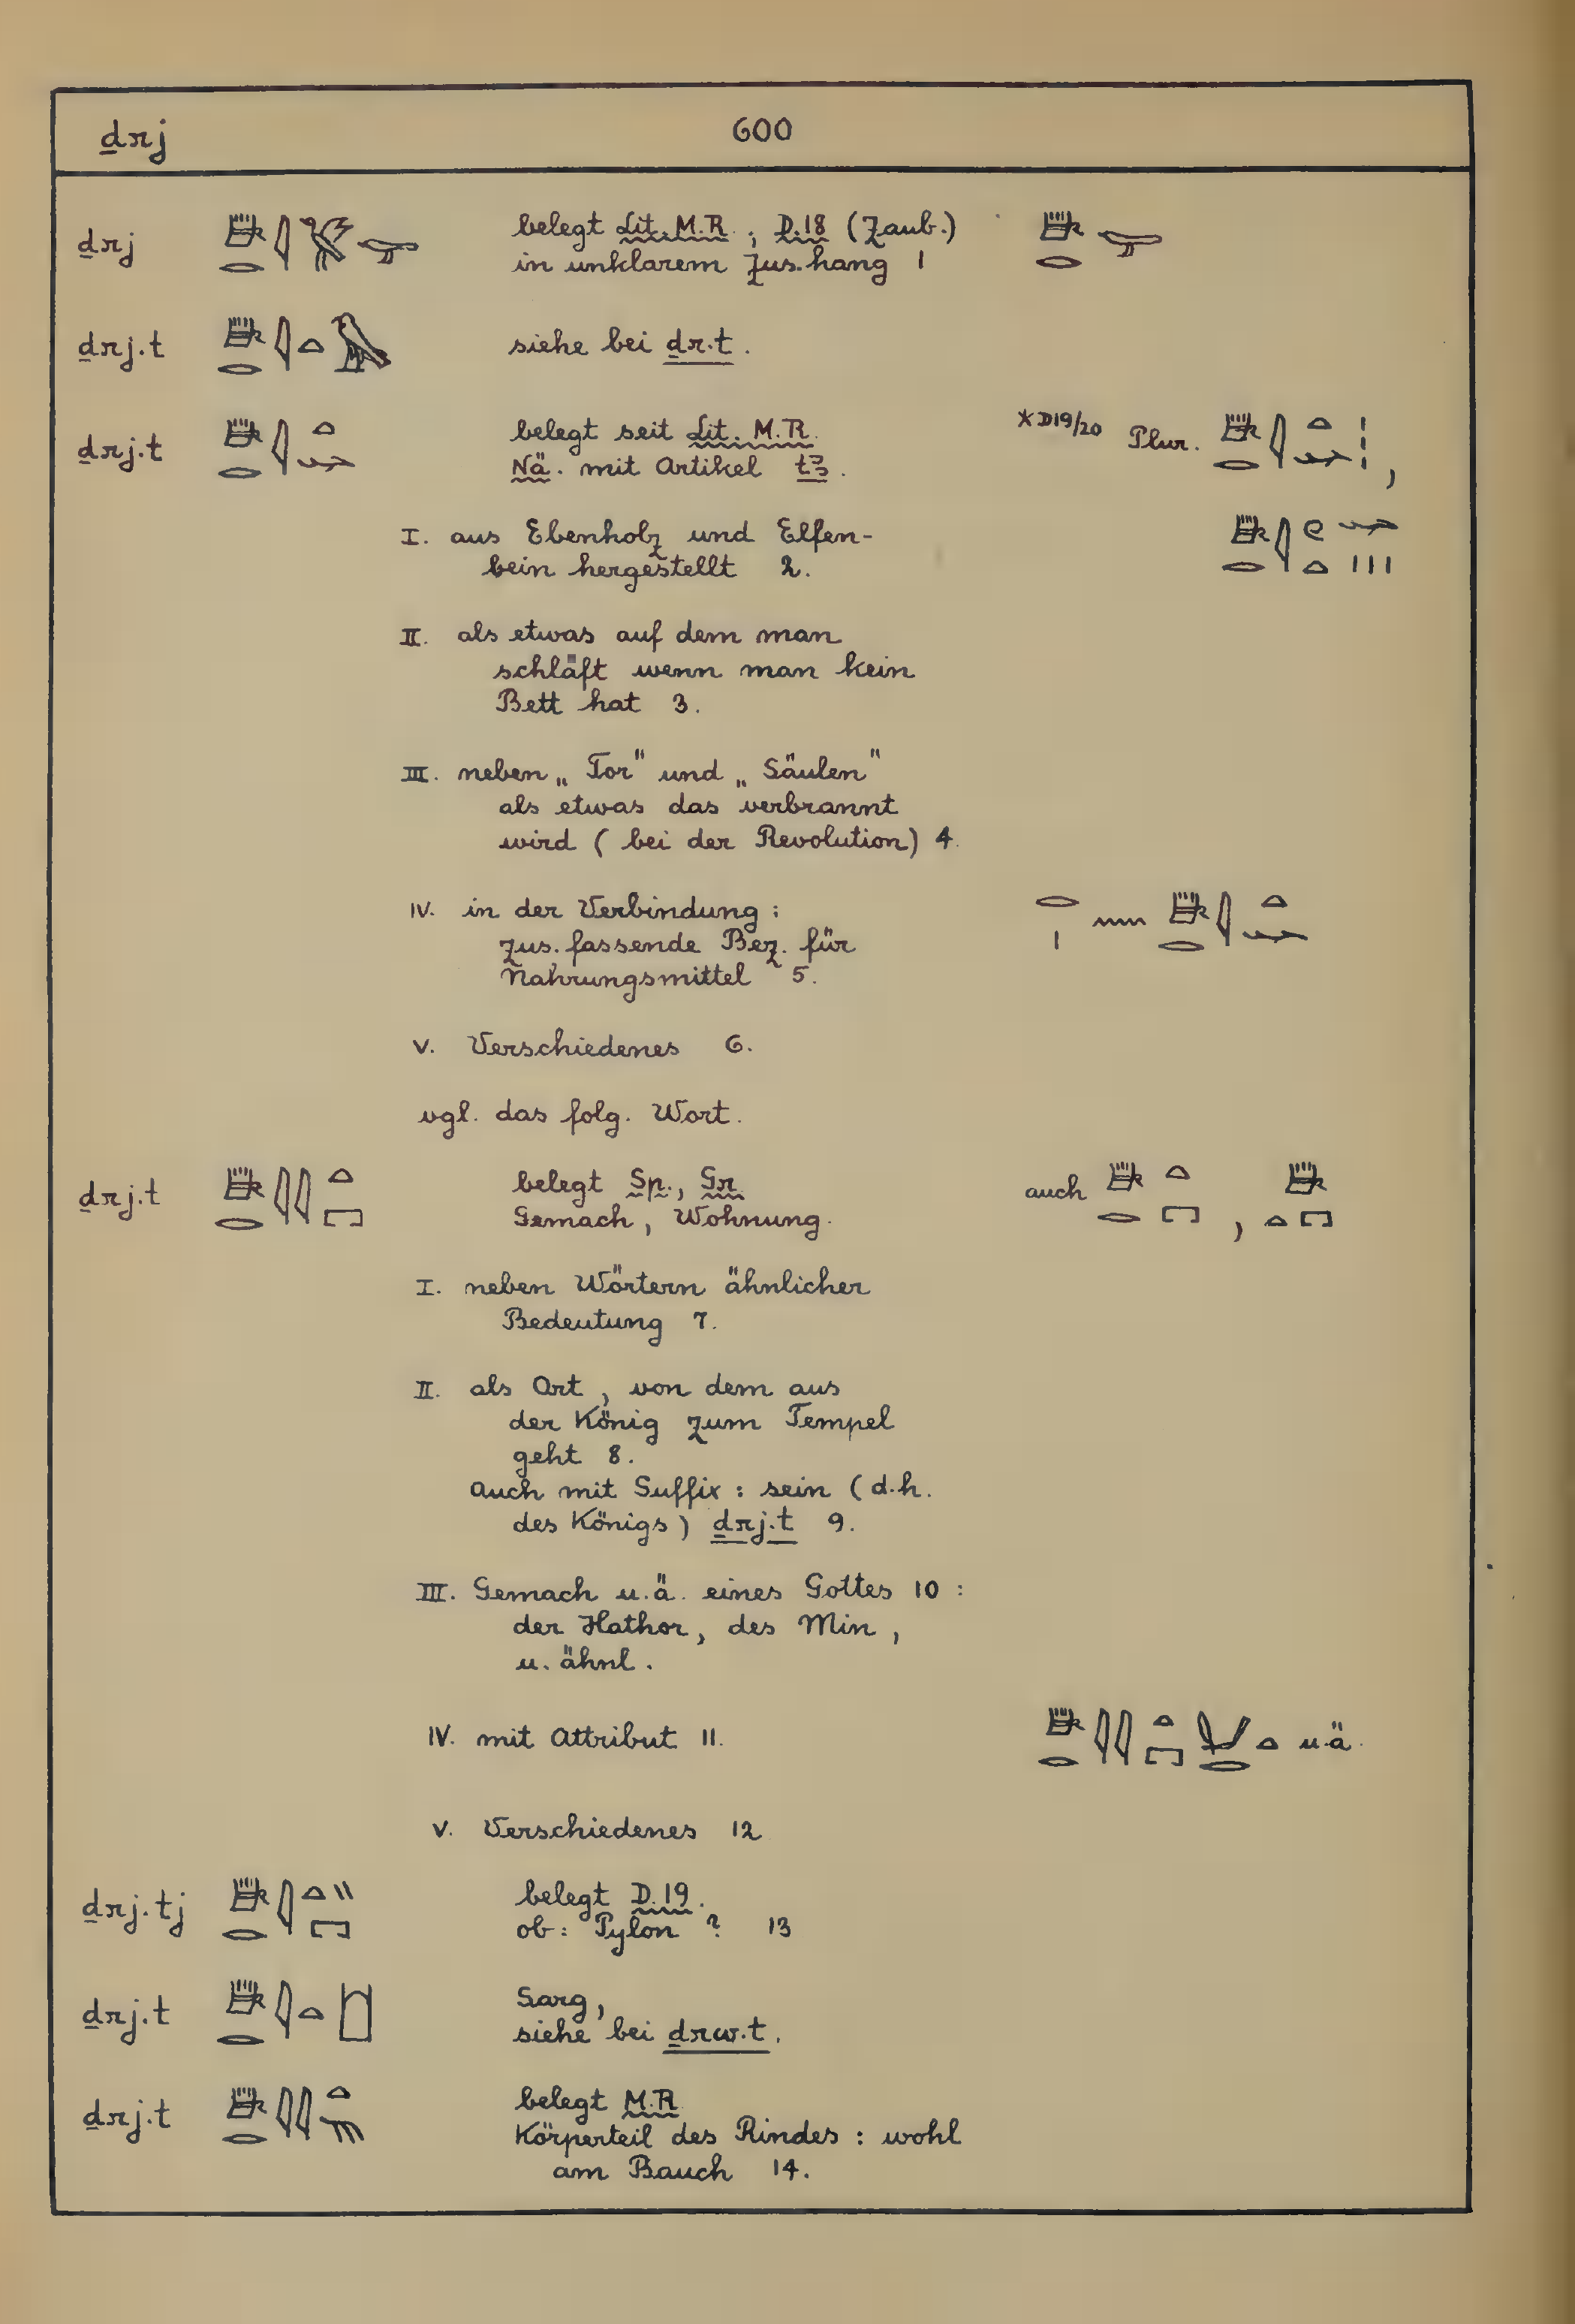 ḏrj 600
ḏrj belegt Lit. M.R.; D.18 (Zaub.)
in unklarem Zus.hang 1
ḏrj.t siehe bei ḏr.t.
ḏrj.t belegt seit Lit. M.R. *D19/20 Plur. ,
Nä. mit Artikel tꜣ.
I. aus Ebenholz und Elfen-
bein hergestellt 2.
II. als etwas auf dem man
schläft wenn man kein
Bett hat 3.
III. neben „Tor" und „Säulen"
als etwas das verbrannt
wird (bei der Revolution) 4.
IV. in der Verbindung:
zus.fassende Bez. für
Nahrungsmittel 5.
V. Verschiedenes 6.
vgl. das folg. Wort.
ḏrj.t belegt Sp., Gr. auch ,
Gemach, Wohnung.
I. neben Wörtern ähnlicher
Bedeutung 7.
II. als Ort, von dem aus
der König zum Tempel
geht 8.
Auch mit Suffix: sein (d.h.
des Königs) ḏrj.t 9.
III. Gemach u.ä. eines Gottes 10:
der Hathor, des Min,
u. ähnl.
IV. mit Attribut 11. u.ä.
V. Verschiedenes 12
ḏrj.tj belegt D.19.
ob: Pylon? 13
ḏrj.t Sarg,
siehe bei ḏrw.t.
ḏrj.t belegt M.R.
Körperteil des Rindes: wohl
am Bauch 14.